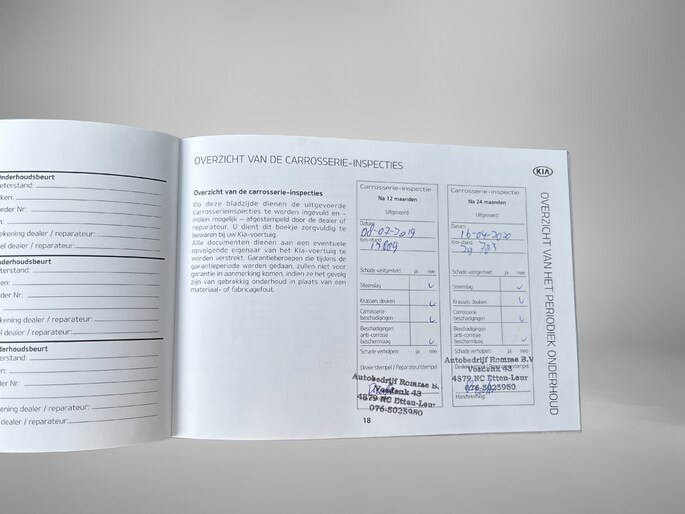 Onderhoudsbeurt
eterstand:
ken:
order Nr:
ekening dealer / reparateur:
el dealer / reparateur:
nderhoudsbeurt
terstand:
en:
rder Nr:
kening dealer / reparateur:
l dealer / reparateur:
derhoudsbeurt
erstand:
en:
der Nr:
ening dealer / reparateur:
dealer / reparateur:
OVERZICHT VAN DE CARROSSERIE-INSPECTIES
Overzicht van de carrosserie-inspecties
Op deze bladzijde dienen de uitgevoerde
carrosserieinspecties te worden ingevuld en -
indien mogelijk – afgestempeld door de dealer of
reparateur. U dient dit boekje zorgvuldig te
bewaren bij uw Kia-voertuig.
Alle documenten dienen aan een eventuele
opvolgende eigenaar van het Kia-voertuig te
worden verstrekt. Garantieberoepen die tijdens de
garantieperiode worden gedaan, zullen niet voor
garantie in aanmerking komen, indien ze het gevolg
zijn van gebrekkig onderhoud in plaats van een
materiaal- of fabricagefout.
Carrosserie-inspectie
Na 12 maanden
Uitgevoerd
Datum
Km-stand
Schade vastgesteld: ja nee
Steenslag
Krassen, deuken
Carrosserie
beschadigingen
Beschadigingen
anti-corrosie
beschermlaag
Schade verholpen: ja nee
Dealerstempel / Reparateurstempel
Autobedrijf Romme B.
Vosdonk 43
4879 NC Etten-Leur
076-5025950
Carrosserie-inspectie
Na 24 maanden
Uitgevoerd
Datum:
16-04-2020
Km-stand
29 783
Schade vastgesteld: ja nee
Steenslag
Krassen, deuken
Carrosserie
beschadigingen
Beschadigingen
anti-corrosie
beschermlaag
Schade verholpen: ja nee
Autobedrijf Romme B.V
Vosdonk 43
4879 NC Etten-Leur
076-5025950
Handtekening:
18
KIA
OVERZICHT VAN HET PERIODIEK ONDERHOUD